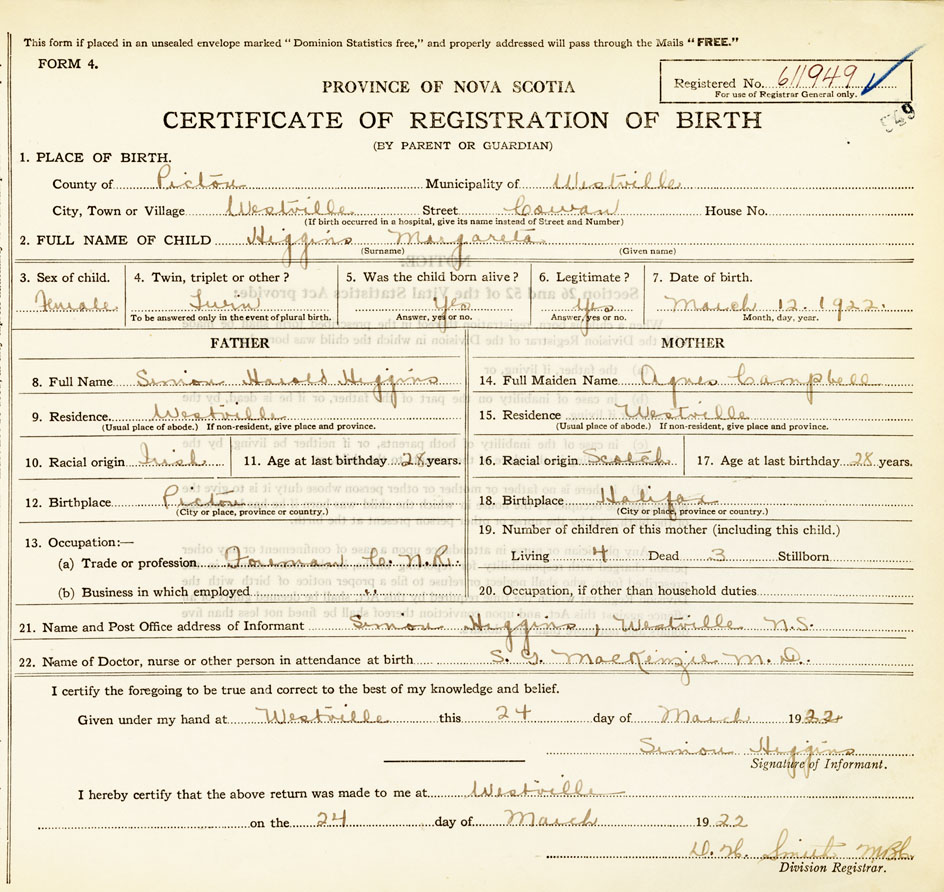 This form if placed in an unsealed envelope marked "Dominion Statistics free," and properly addressed will pass through the Mails "FREE."
FORM 4.
Registered No. 611949
For use of Registrar General only.
549
PROVINCE OF NOVA SCOTIA
CERTIFICATE OF REGISTRATION OF BIRTH
(BY PARENT OR GUARDIAN)
1. PLACE OF BIRTH.
County of Pictou Municipality of Westville
City, Town or Village Westville Street Cowan House No.
(If birth occurred in a hospital, give its name instead of Street and Number)
2. FULL NAME OF CHILD Higgins Margareta
(Surname) (Given name)
3. Sex of child. 4. Twin, triplet or other? 5. Was the child born alive? 6. Legitimate? 7. Date of birth.
Female Twin Yes Yes March 12. 1922.
To be answered only in the event of plural birth. Answer, yes or no. Answer, yes or no. Month, day, year.
FATHER MOTHER
8. Full Name Simon Harold Higgins 14. Full Maiden Name Agnes Campbell
9. Residence. Westville 15. Residence Westville
(Usual place of abode.) If non-resident, give place and province. (Usual place of abode.) If non-resident, give place and province.
10. Racial origin Irish 11. Age at last birthday 28 years. 16. Racial origin Scotch 17. Age at last birthday 28 years.
12. Birthplace Pictou 18. Birthplace Halifax
(City or place, province or country.) (City or place, province or country.)
13. Occupation:— 19. Number of children of this mother (including this child.)
(a) Trade or profession Foreman C. N. R. Living 4 Dead 3 Stillborn
(b) Business in which employed " 20. Occupation, if other than household duties
21. Name and Post Office address of Informant Simon Higgins, Westville N.S.
22. Name of Doctor, nurse or other person in attendance at birth S. G. MacKenzie M. D.
I certify the foregoing to be true and correct to the best of my knowledge and belief.
Given under my hand at Westville this 24 day of March 1922
Simon Higgins
Signature of Informant.
I hereby certify that the above return was made to me at Westville
on the 24 day of March 1922
D. H. Smith
Division Registrar.